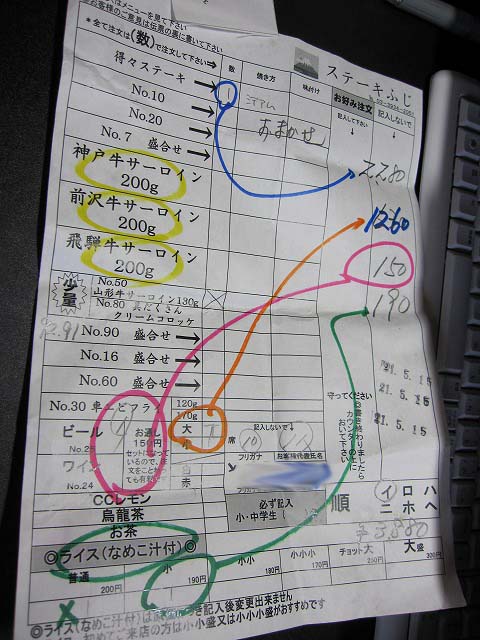 はメニューを見て下さい
お客様のご意見は伝票の裏に書いて下さい
*全て注文は(数)で注文して下さい⇒
数
焼き方
味付け
ステーキふじ
お好み注文
記入しないで
記入して下さい
得々ステーキ
No.10
ミディアム
No.20
おまかせ
No.7 盛合せ
2280
神戸牛サーロイン
200g
1260
前沢牛サーロイン
200g
150
飛騨牛サーロイン
200g
190
少量
No.50
山形牛サーロイン130g
No.80 具だくさん
クリームコロッケ
No.90 盛合せ
No.16 盛合せ
No.60 盛合せ
'21.5.15
'21.5.15
'21.5.15
No.30 車エビフライ
120g
170g
ビール
No.25
お通し
150円
大
小
ワイン
No.24
白
赤
記入しないで
席
10
フリガナ
お客様代表氏名
守ってください
③書き終わりましたら
カウンターの上に
おいて下さい
CCレモン
烏龍茶
お茶
必ず記入
小・中学生( )
順
イ ロ ハ
ニ ホ ヘ
3,880
◎ライス(なめこ汁付)◎
普通
200円
小
190円
小小
180円
小小小
170円
チョット大
250円
大盛
300円
◎ライス(なめこ汁付)は
記入後変更出来ません
ご来店の方は小小盛又は小小小盛がおすすめです